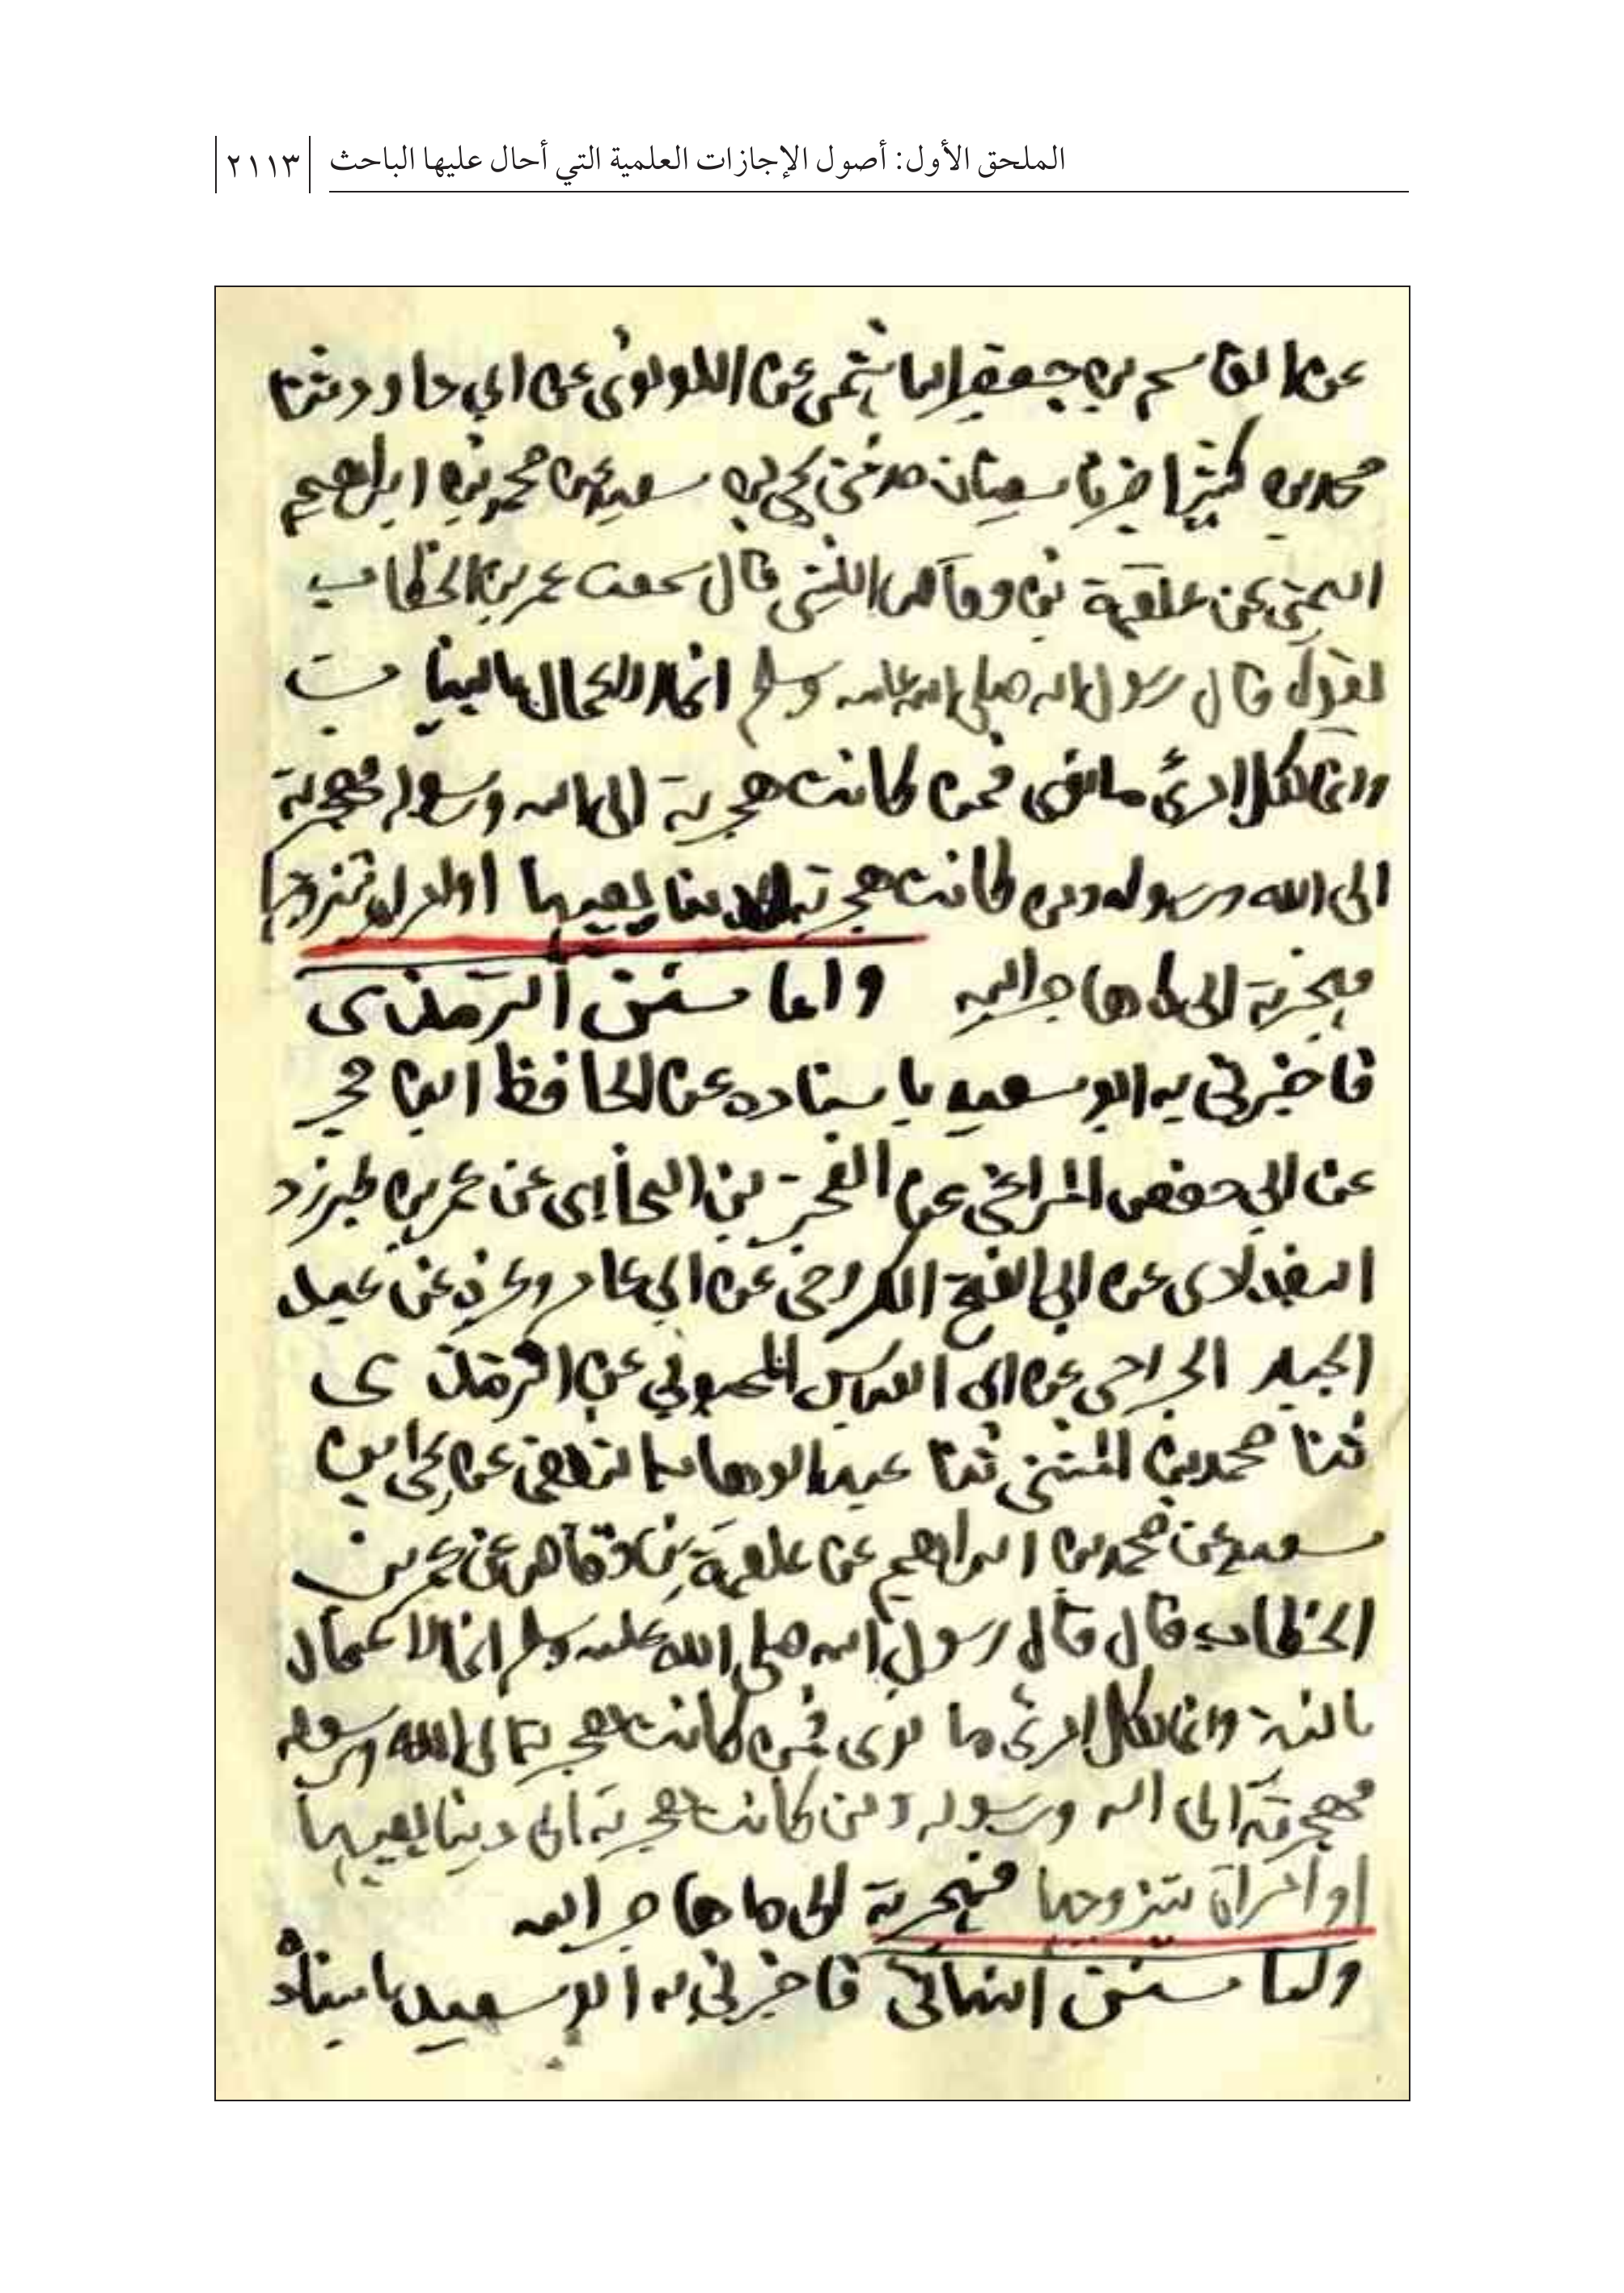 الملحق الأول: أصول الإجازات العلمية التي أحال عليها الباحث ٢١١٣
عن القاسم بن جعفر الهاشمي عن اللولوئى عن ابي داود ثنا
محمد بن كثير اخبرنا سفيان حدثنى يحيى بن سعيد عن محمد بن ابراهيم
التيمى عن علقمة بن وقاص الليثى قال سمعت عمر بن الخطاب
يقول قال رسول الله صلى الله عليه وسلم انما الاعمال بالنيات
وانما لكل امرئ مانوى فمن كانت هجرته الى الله ورسوله فهجرته
الى الله ورسوله ومن كانت هجرته لدينا يصيبها او امراة يتزوجها
فهجرته الى ما هاجر اليه واما سنن الترمذى
فاخبرنى به ابو سعيد باسناده عن الحافظ ابن حجر
عن ابي حفص المراغي عن الفخر بن البخاري عن عمر بن طبرزد
البغدادى عن ابي الفتح الكروخى عن ابي عامر وغيره عن عبد
الجبار الجراحى عن ابى العباس المحبوبي عن الترمذى
ثنا محمد بن المثنى ثنا عبد الوهاب الثقفى عن يحيى بن
سعيد عن محمد بن ابراهيم عن علقمة بن وقاص عن عمر بن
الخطاب قال قال رسول الله صلى الله عليه وسلم انما الاعمال
بالنية وانما لكل امرئ ما نوى فمن كانت هجرته الى الله ورسوله
فهجرته الى الله ورسوله ومن كانت هجرته الى دنيا يصيبها
او امراة يتزوجها فهجرته الى ما هاجر اليه
واما سنن النسائي فاخبرني به ابو سعيد باسناده